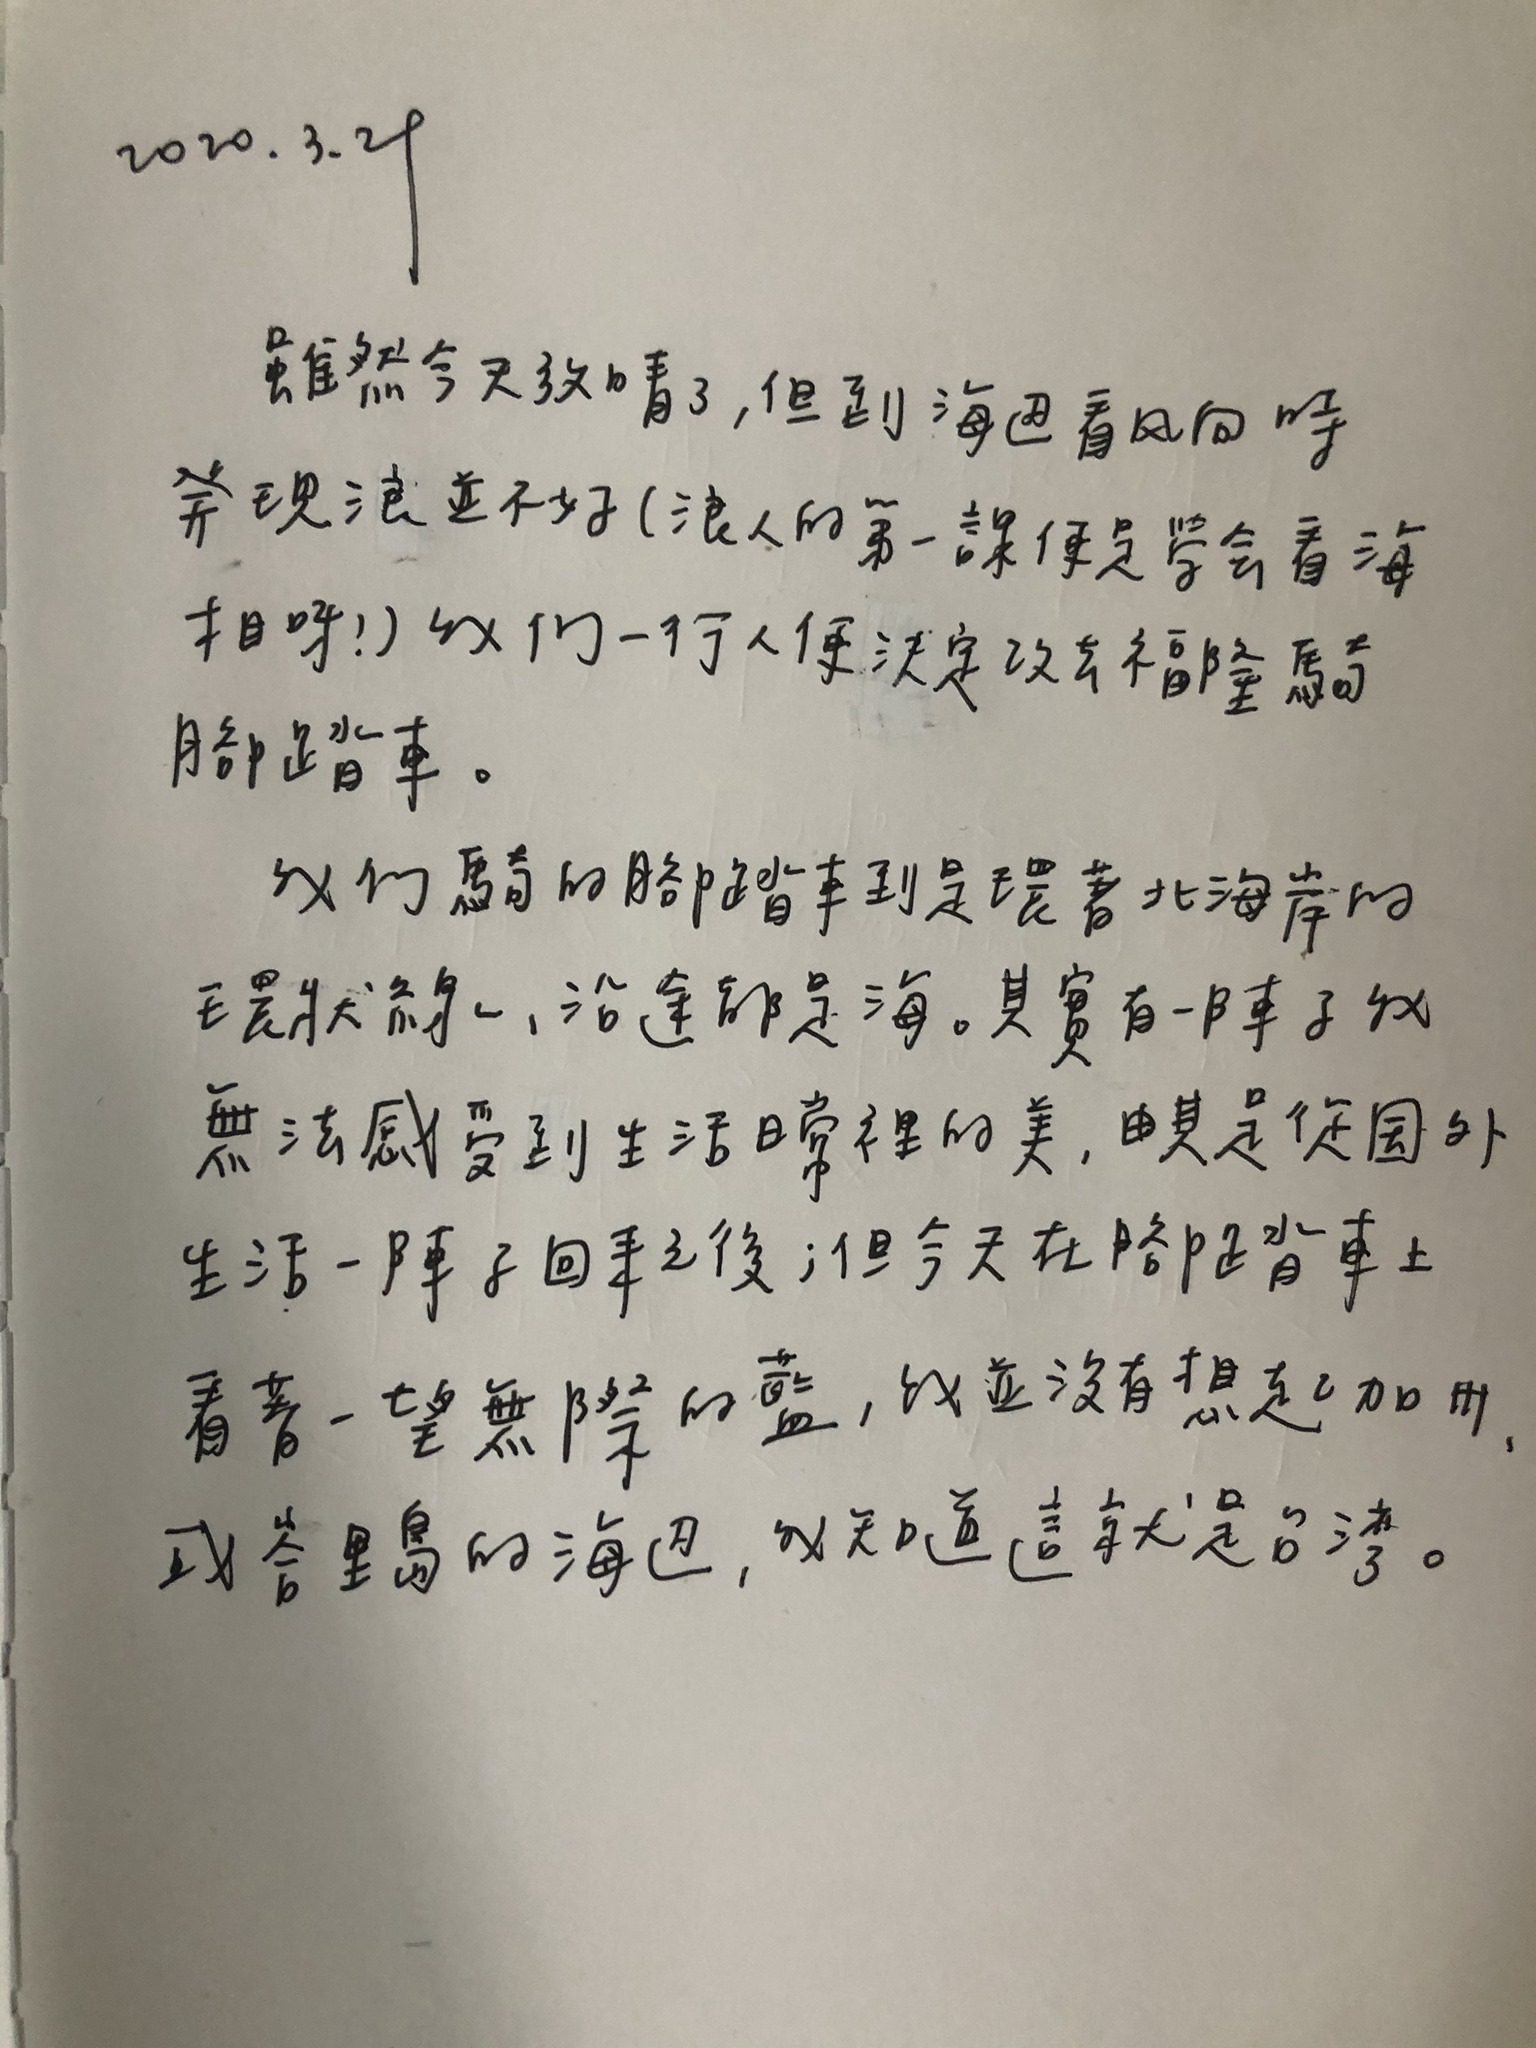 2020.3.29
雖然今天放晴了,但到海边看风向時
発現浪並不好(浪人的第一課便是学会看海
相呀!)我们一行人便决定改去福隆騎
腳踏車。
我们騎的腳踏車到是環著北海岸的
環狀線、沿途都是海。其實有一陣子我
無法感受到生活日常裡的美,尤其是從国外
生活一陣子回來之後;但今天在腳踏車上
看著一望無際的藍,我並没有想起加州、
或峇里島的海边,我知道這就是台湾。